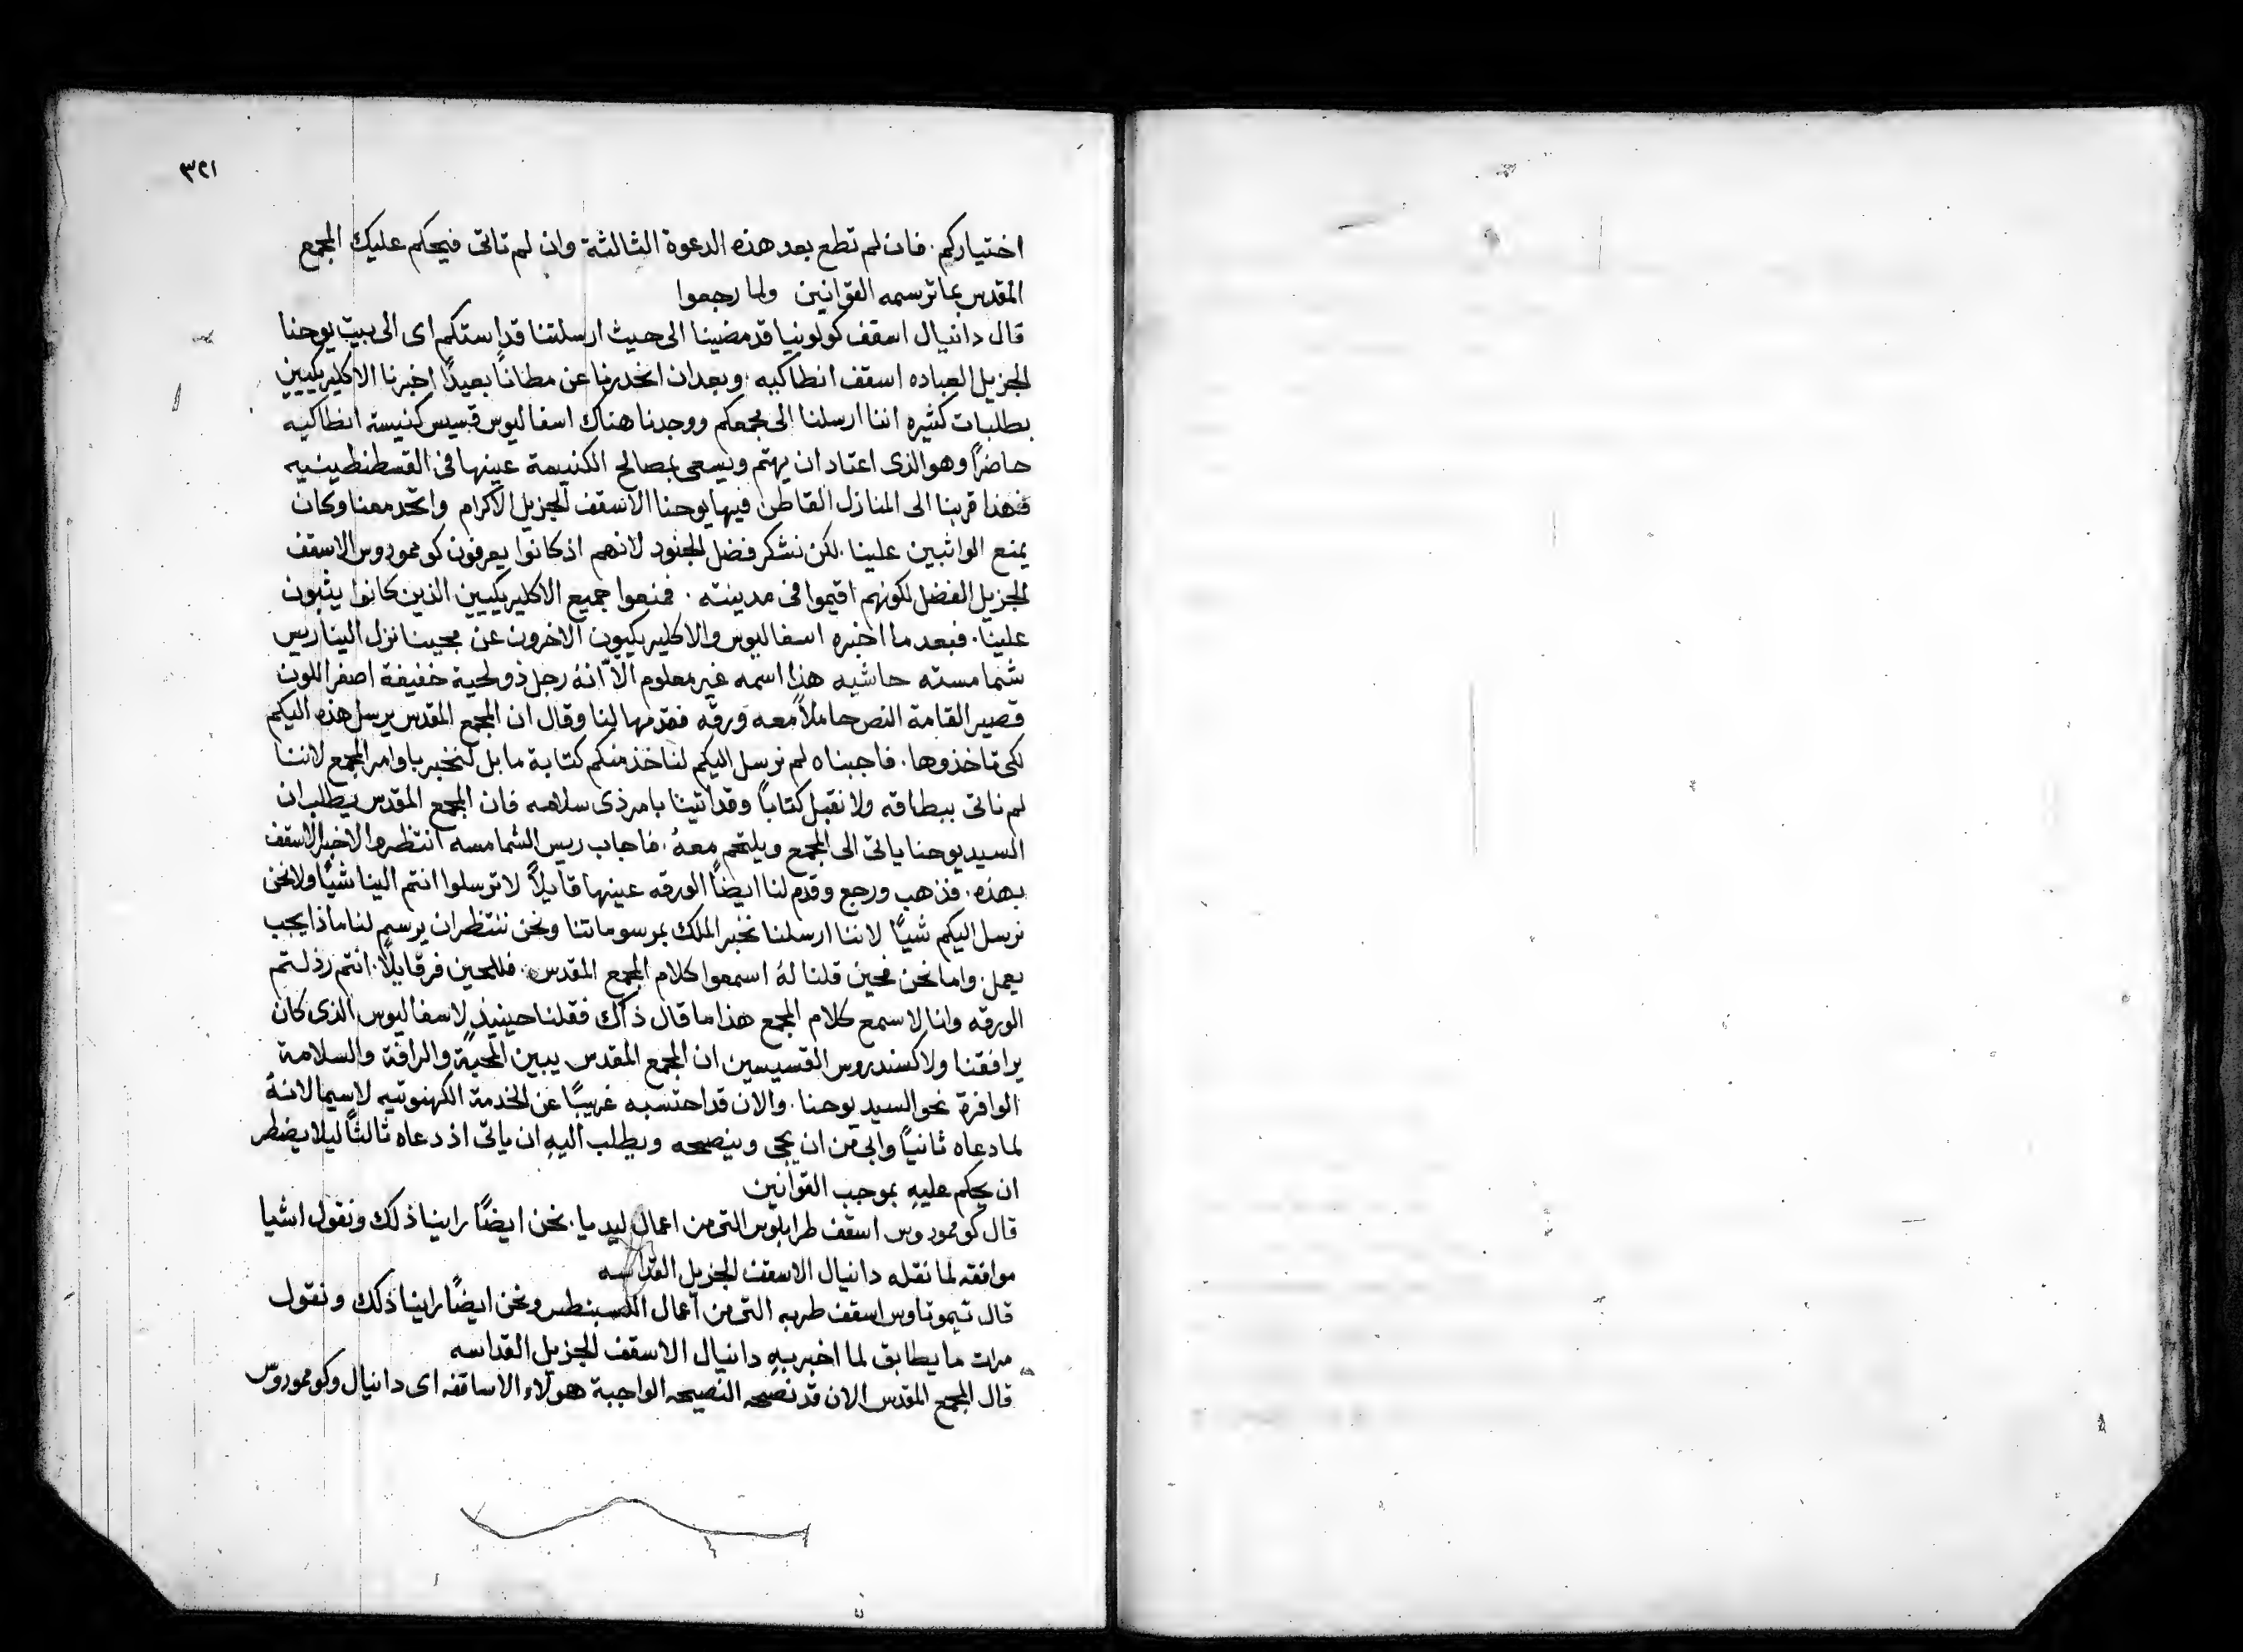 ٣٢١
اختياركم. فان لم تطع بعد هذه الدعوة الثالثة وان لم تاتى فيحكم عليك المجمع
المقدس بما ترسمه القوانين ولما رجعوا
قال دانيال اسقف كولونيا قد مضينا الى حيث ارسلتنا قداستكم اى الى بيت يوحنا
الجزيل العباده اسقف انطاكيه. وبعد ان انحدرنا عن مطاناً بعيداً اخبرنا الاكليريكيين
بطلبات كثيره اننا ارسلنا الى مجمعكم ووجدنا هناك اسفاليوس قسيس كنيسة انطاكيه
حاضراً وهو الذى اعتاد ان يهتم ويسعى بمصالح الكنيسة عينها فى القسطنطينيه
فهذا قربنا الى المنازل القاطن فيها يوحنا الاسقف الجزيل الاكرام واتحد معنا وكان
يمنع الواثبين علينا. لكن نشكر فضل الجنود لانهم اذ كانوا يعرفون كومودوس الاسقف
الجزيل الفضل لكونهم اقيموا فى مدينته. فمنعوا جميع الاكليريكيين الذين كانوا يثبون
علينا. فبعد ما اخبره اسفاليوس والاكليريكيون الاخرون عن مجينا نزل الينا ريس
شمامسته حاشيه هذا اسمه غير معلوم الاّ انهُ رجل ذو لحية خفيفة اصفر اللون
قصير القامة النص حاملاً معه ورقه فقدمها لنا وقال ان المجمع المقدس يرسل هذه اليكم
لكى تاخذوها. فاجبناه لم نرسل اليكم لناخذ منكم كتابة ما بل لنخبر باوامر المجمع لاننا
لم ناتى ببطاقه ولا نقبل كتاباً وقد اتينا بامر ذى سلامه فان المجمع المقدس يطلب ان
السيد يوحنا ياتى الى المجمع ويلتحم معهُ. فاجاب ريس الشمامسه انتظروا لاخبر الاسقف
بهذه. فذهب ورجع وقدم لنا ايضاً الورقه عينها قايلاً لا ترسلوا انتم الينا شيًا ولا نحن
نرسل اليكم شيًا لاننا ارسلنا نخبر الملك بمرسوماتنا ونحن ننتظر ان يرسم لنا ماذا يجب
يعمل. واما نحن فحين قلنا لهُ اسمعوا كلام المجمع المقدس. فللحين فر قايلاً. انتم رذلتم
الورقه وانا لا سمع كلام المجمع هذا ما قال ذاك فقلنا حينيذٍ لاسفاليوس الذى كان
يرافقنا ولاكسندروس القسيسين ان المجمع المقدس يبين المحبة والرافة والسلامة
الوافرة نحو السيد يوحنا. والان قد احتسبه غريبًا عن الخدمة الكهنوتيه لاسيما لانهُ
لما دعاه ثانيًا وابى من ان يجى وينصحه ويطلب اليهِ ان ياتى اذ دعاه ثالثًا ليلا يضطر
ان يحكم عليهِ بموجب القوانين
قال كومودوس اسقف طرابلوس التى من اعمال ليديا. نحن ايضًا راينا ذلك ونقول اشيا
موافقه لما نقله دانيال الاسقف الجزيل القداسه
قال تيموتاوس اسقف طربه التى من اعمال ونحن ايضًا راينا ذلك ونقول
مرات ما يطابق لما اخبر بهِ دانيال الاسقف الجزيل القداسه
قال المجمع المقدس الان قد نصحه النصيحه الواجبة هولاء الاساقفه اى دانيال وكومودوس